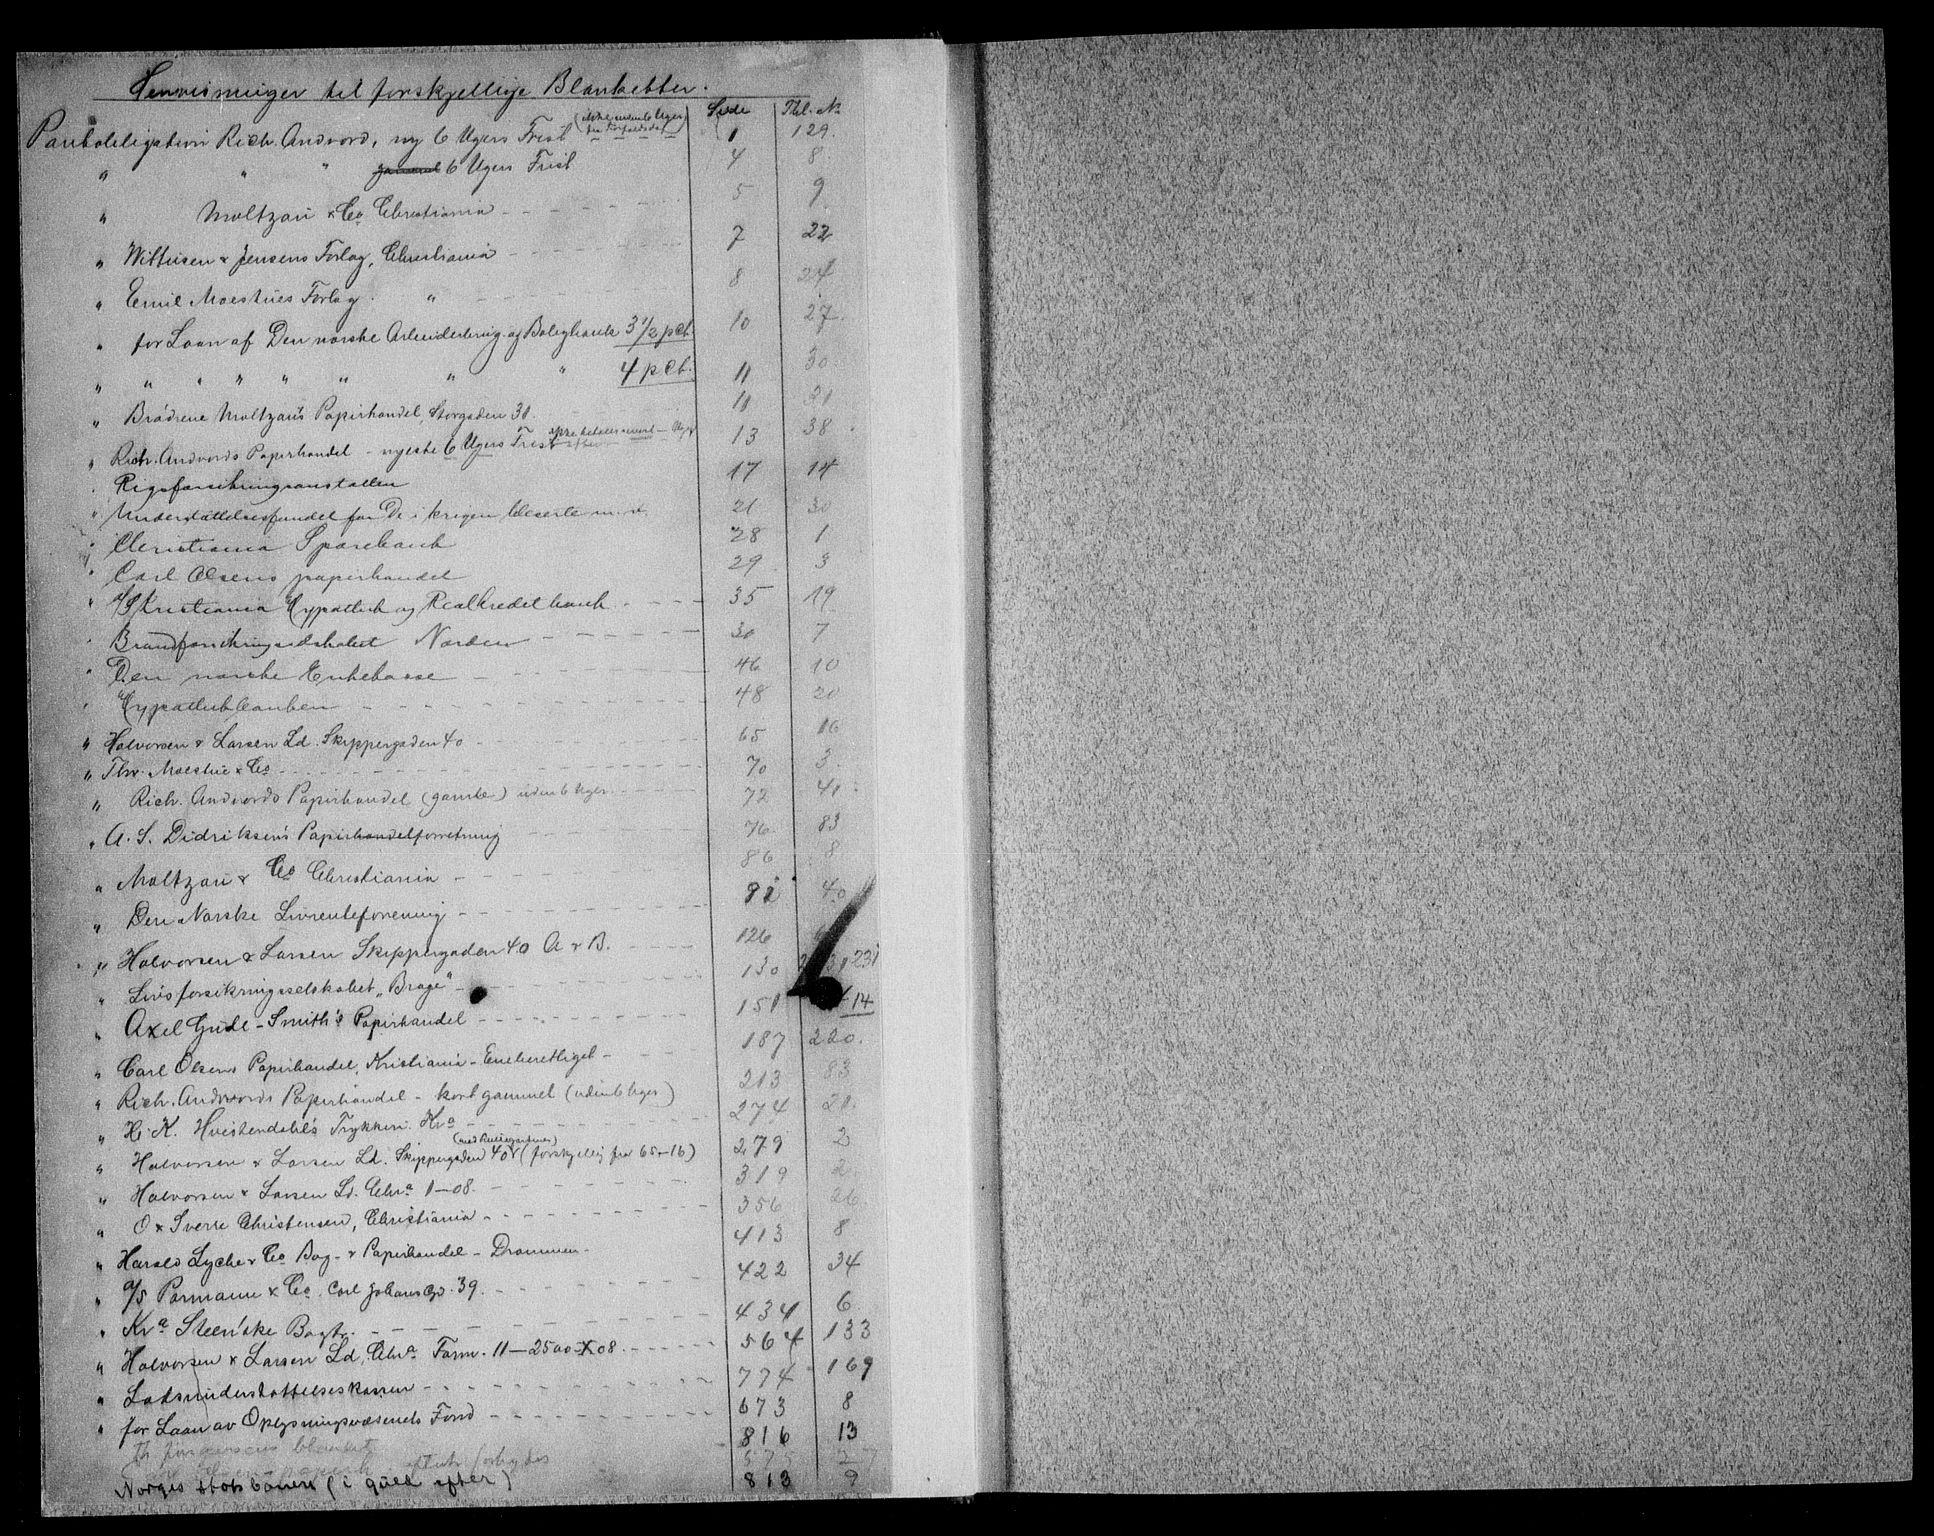 Henvisninger til forskjellige Blanketter.
Side Tbl. No
Pantobligation Rich. Andvord, ny 6 Ugers Frist (ikke inden 6 Uger fra Forfaldsdag) 1 129.
" " " gammel 6 Ugers Frist 4 8
" Moltzau & Co Christiania 5 9
" Wittusen & Jensens Forlag, Christiania 7 22
" Emil Moestues Forlag " 8 24
" for Laan af Den norske Arbeiderbrug- og Boligbank 3 1/2 pCt. 10 27.
" " " " " " " " 4 pCt. 11 30.
" Brødrene Moltzau's Papirhandel, Storgaden 31. 11 31
" Rich. Andvords Papirhandel - nyeste 6 Ugers Frist 13 38
" Rigsforsikringsanstalten 17 14
" Understøttelsesfondet for De i krigen blesserte m.v. 21 30
" Christiania Sparebank 28 1
" Carl Olsens papirhandel 29 3
" A/S Kristiania Hypothek og Realkreditbank 35 19
" Brandforsikringsselskabet Norden 30 7
" Den norske Enkekasse 46 10
" Hypothekbanken 48 20
" Halvorsen & Larsen Ld. Skippergaden 40 65 16
" Thv. Moestue & Co 70 3
" Rich. Andvords Papirhandel (gamle) uden 6 Uger 72 41
" A. S. Didriksen's Papirhandelforretning 76 83
" Moltzau & Co Christiania 86 8
" Den Norske Livrenteforening 91 40
" Halvorsen & Larsen Skippergaden 40 A & B. 126
" Livsforsikringsselskabet "Brage" 130 231
" Axel Gude-Smith's Papirhandel 151 14
" Carl Olsens Papirhandel, Kristiania - Eneberettiget - 187 220.
" Rich. Andvords Papirhandel - kort gammel (uden 6 Uger) 213 83
" H. K. Hvistendahl's Trykkeri Kra 274 21.
" Halvorsen & Larsen Ld. Skippergaden 40 (forskjellig fra 65-16) 279 2
" Halvorsen & Larsen Ld. Chra 1-08. 319 2
" O & Sverre Christensen, Christiania 356 26
" Harald Lyche & Co Bog- & Papirhandel - Drammen 413 8
" A/S Parmann & Co. Carl Johans Gd. 39. 422 34
" Kra Steen'ske Bogtr. 434 6
" Halvorsen & Larsen Ld, Chra Form. 11-2500-X 08. 564 133
" Lodsunderstøttelseskassen 774 169
" for Laan av Oplysningsvæsenets Fond 673 8
816 13
Norges statsbaner (i gull efter) 813 9